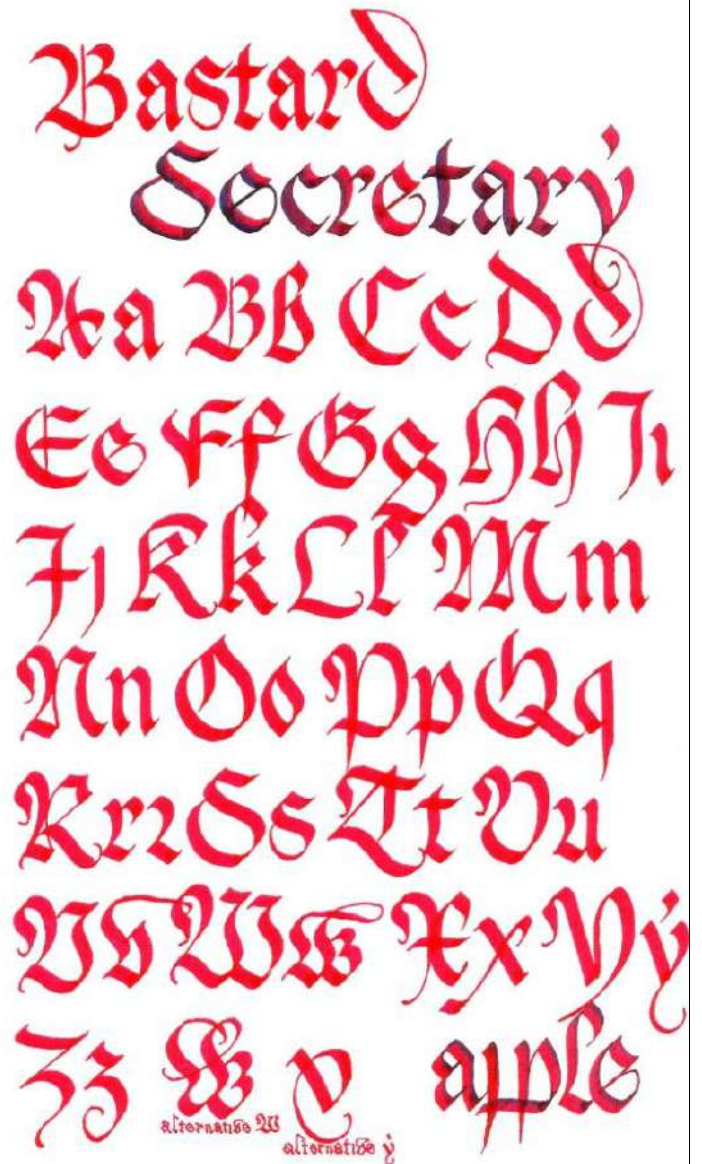 Bastard
Secretarẏ
Aa Bb Cc Dd
Ee Ff Gg Hh Iı
Jȷ Kk Ll Mm
Nn Oo Pp Qq
Rrꝛ Ss Tt Uu
Vv Ww Xx Yẏ
Zz apple
alternative W
alternative ẏ